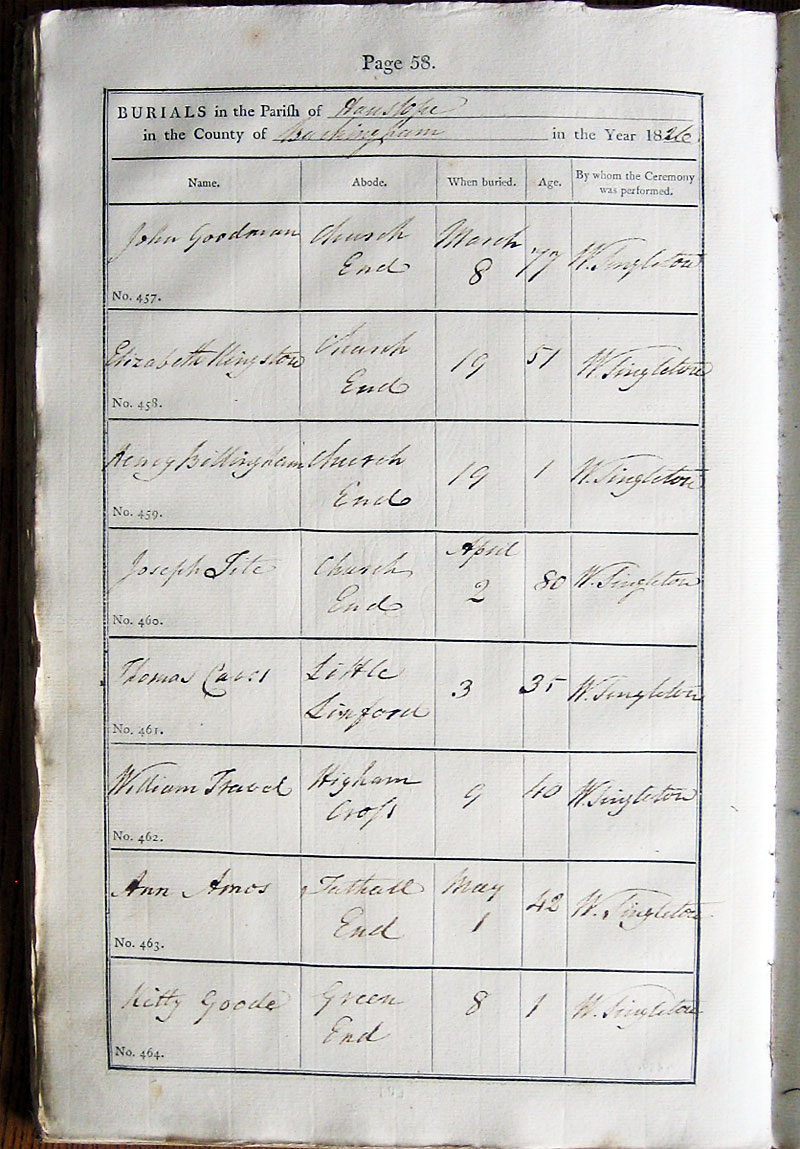 Page 58.
BURIALS in the Parish of Hanslope
in the County of Buckingham in the Year 1826.
Name. Abode. When buried. Age. By whom the Ceremony was performed.
John Goodman Church End March 8 77 W. Singleton
No. 457.
Elizabeth Kingston Church End 19 51 W. Singleton
No. 458.
Henry Billingham Church End 19 1 W. Singleton
No. 459.
Joseph Tite Church End April 2 80 W. Singleton
No. 460.
Thomas Little Linford 3 35 W. Singleton
No. 461.
William Travel Higham Cross 9 40 W. Singleton
No. 462.
Ann Amos Tathall End May 1 42 W. Singleton
No. 463.
Kitty Goode Green End 8 1 W. Singleton
No. 464.